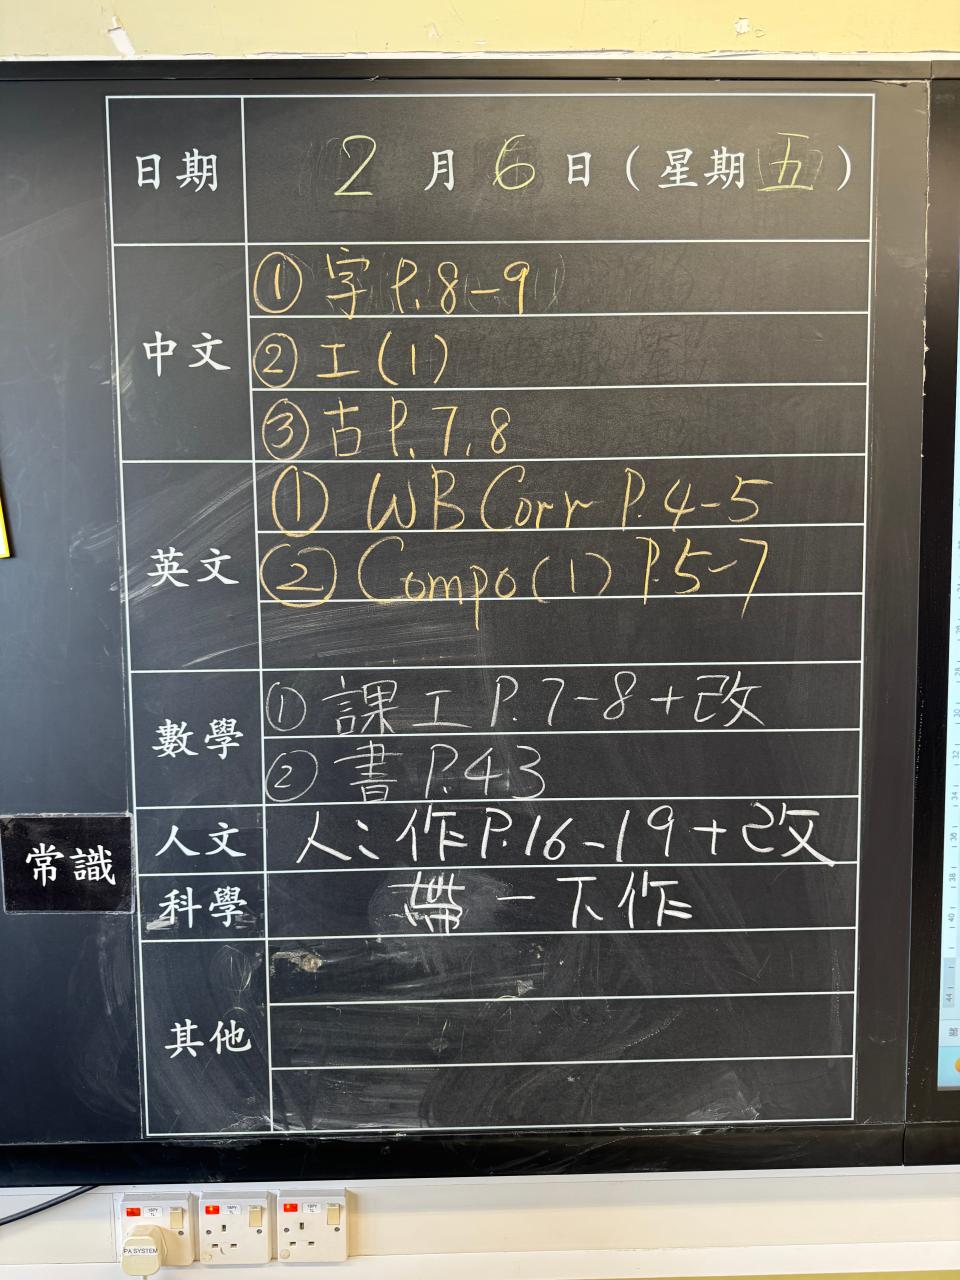 日期 2月6日(星期五)
中文
① 字 P.8-9
② 工(1)
③ 古 P.7,8
英文
① WB Corr P.4-5
② Compo(1) P.5-7
數學
① 課工 P.7-8+改
② 書 P.43
人文 人:作P.16-19+改
常識
科學 帶一下作
其他
PA SYSTEM